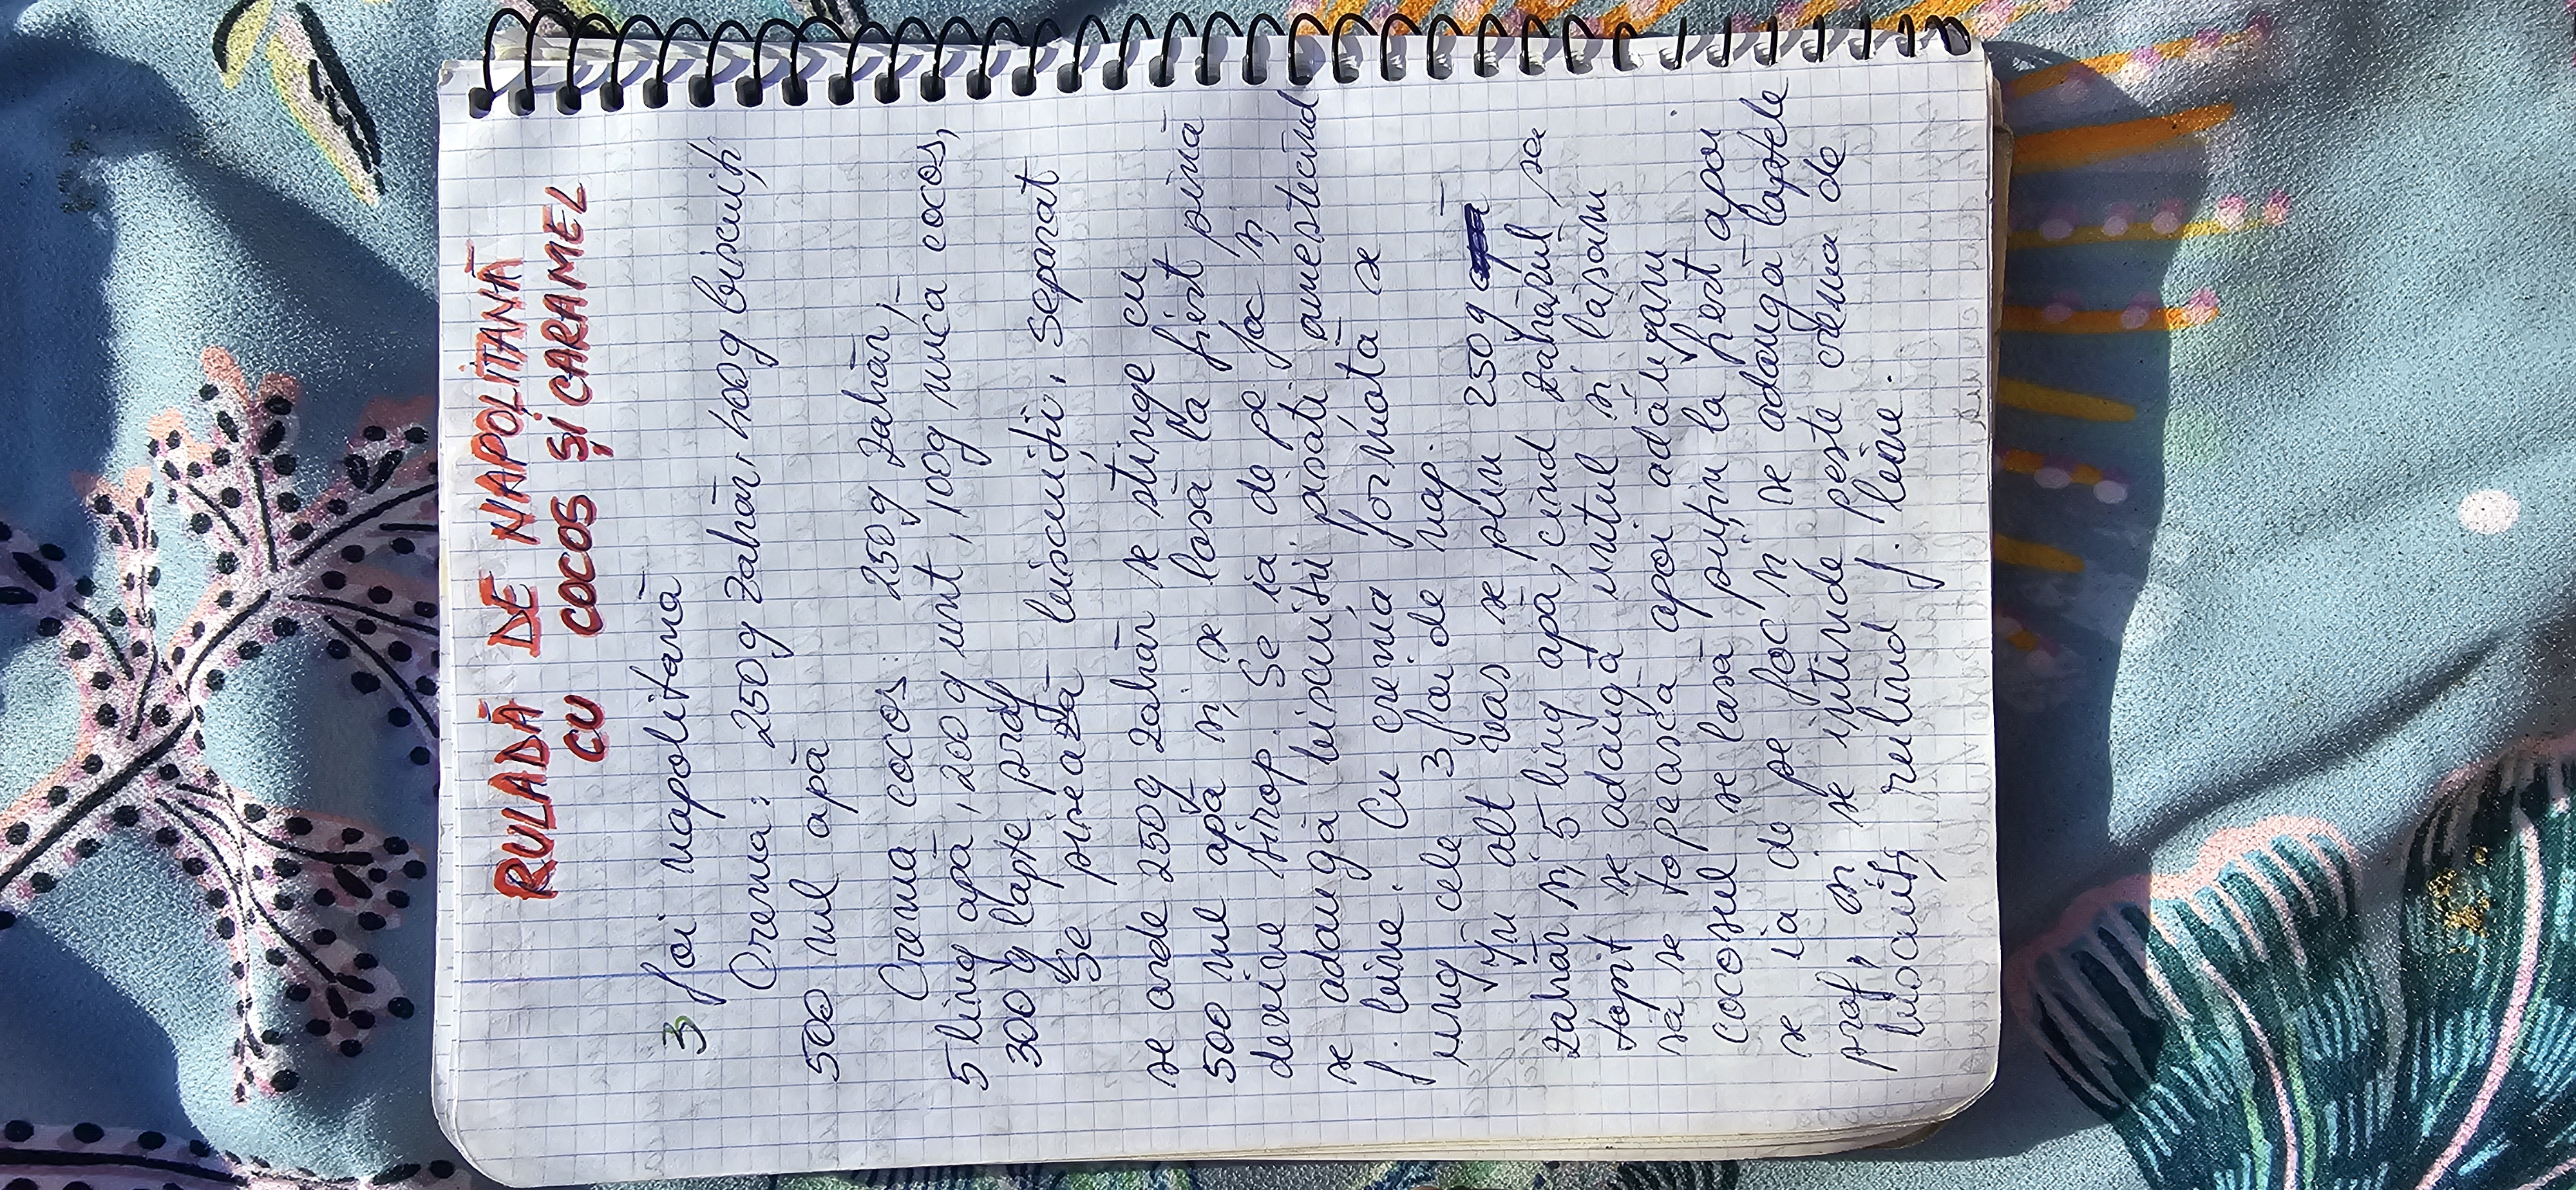 RULADĂ DE NAPOLITANĂ
CU COCOS ȘI CARAMEL
3 foi napolitană
Crema: 250g zahăr, 400g biscuiți
500 ml apă
Crema cocos: 250g zahăr,
5 ling apă, 200g unt, 100g nucă cocos,
300 g lapte praf
Se pisează biscuiții, separat
se arde 250g zahăr se stinge cu
500 ml apă și se lasă la fiert pînă
devine sirop. Se ia de pe foc și
se adaugă biscuiții pisați amestecînd
f. bine. Cu crema formată se
ung cele 3 foi de nap.
În alt vas se pun 250g
zahăr și 5 ling apă, cînd zahărul sa
topit se adaugă untul și lăsăm
să se topească apoi adăugăm
cocosul se lasă puțin la fiert apoi
se ia de pe foc și se adaugă laptele
praf, și se intinde peste crema de
biscuiți rulînd f. bine.